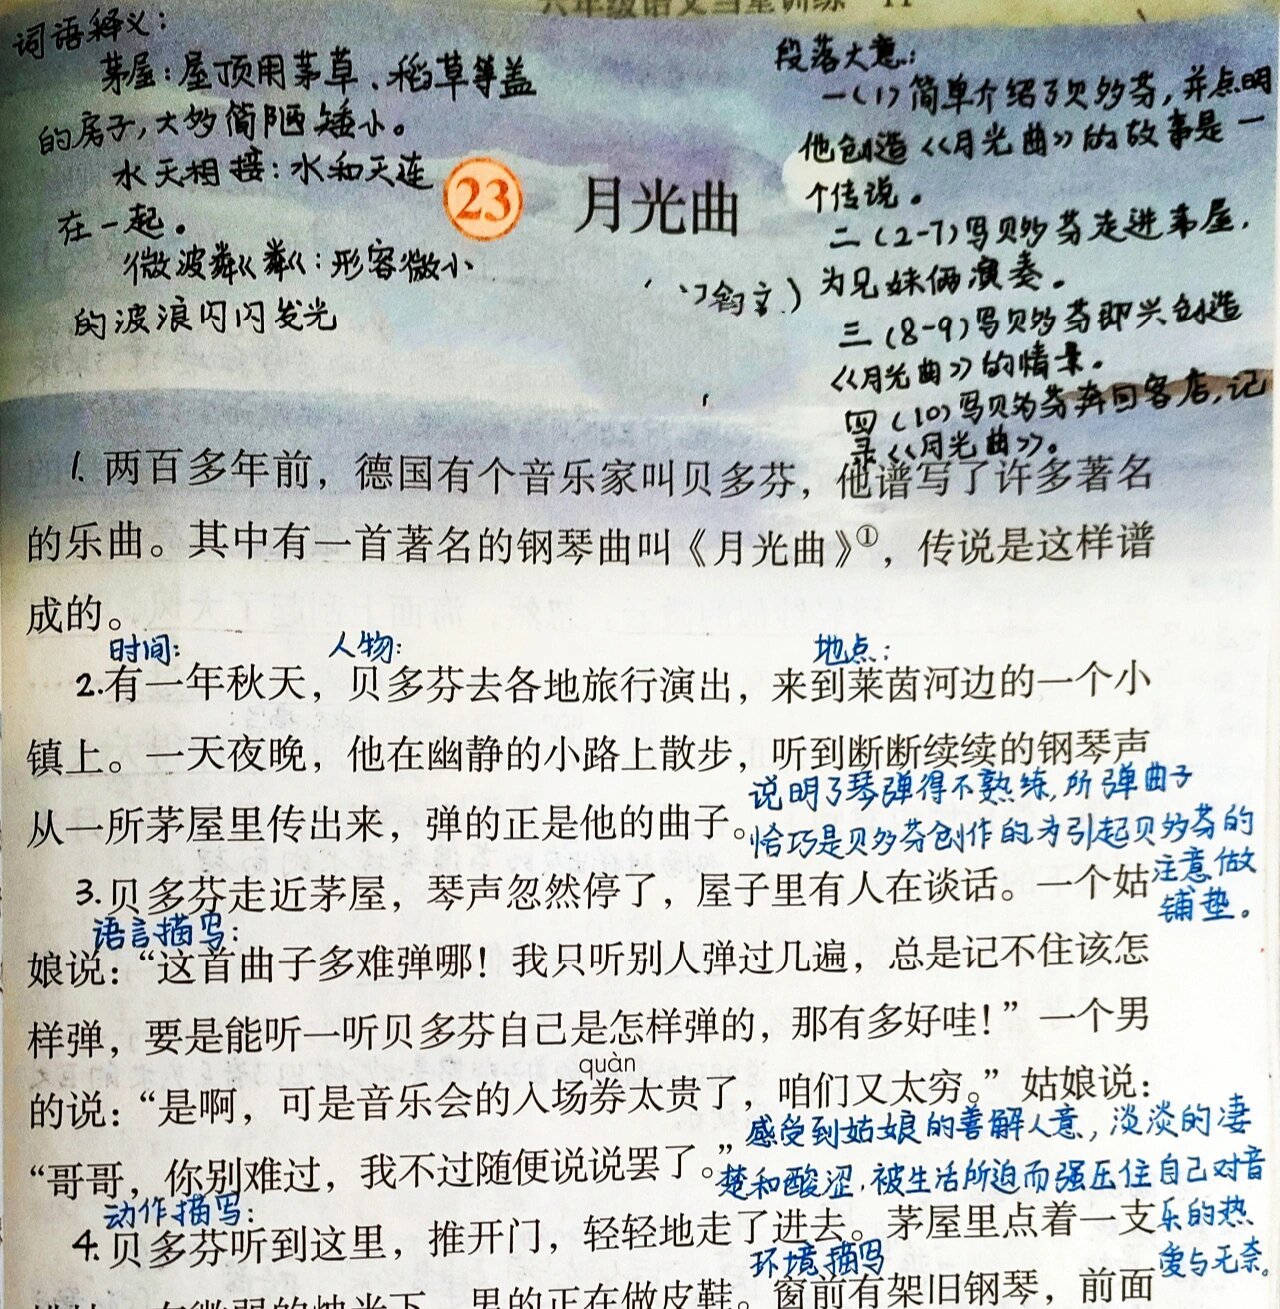 词语释义：
茅屋：屋顶用茅草、稻草等盖
的房子，大多简陋矮小。
水天相接：水和天连
在一起。
微波粼粼：形容微小
的波浪闪闪发光
段落大意：
一(1)简单介绍了贝多芬，并点明
他创造《月光曲》的故事是一
个传说。
二(2-7)写贝多芬走进茅屋，
为兄妹俩演奏。
三(8-9)写贝多芬即兴创造
《月光曲》的情景。
四(10)写贝多芬奔回客店，记
录《月光曲》。
23 月光曲
1.两百多年前，德国有个音乐家叫贝多芬，他谱写了许多著名
的乐曲。其中有一首著名的钢琴曲叫《月光曲》①，传说是这样谱
成的。
时间： 人物： 地点：
2.有一年秋天，贝多芬去各地旅行演出，来到莱茵河边的一个小
镇上。一天夜晚，他在幽静的小路上散步，听到断断续续的钢琴声
从一所茅屋里传出来，弹的正是他的曲子。
说明了琴弹得不熟练，所弹曲子
恰巧是贝多芬创作的为引起贝多芬的
注意做
铺垫。
3.贝多芬走近茅屋，琴声忽然停了，屋子里有人在谈话。一个姑
语言描写：
娘说：“这首曲子多难弹哪！我只听别人弹过几遍，总是记不住该怎
样弹，要是能听一听贝多芬自己是怎样弹的，那有多好哇！”一个男
quàn
的说：“是啊，可是音乐会的入场券太贵了，咱们又太穷。”姑娘说：
“哥哥，你别难过，我不过随便说说罢了。”
感受到姑娘的善解人意，淡淡的凄
楚和酸涩，被生活所迫而强压住自己对音
乐的热
爱与无奈。
动作描写：
4.贝多芬听到这里，推开门，轻轻地走了进去。茅屋里点着一支
环境描写
在微弱的烛光下，男的正在做皮鞋。窗前有架旧钢琴，前面